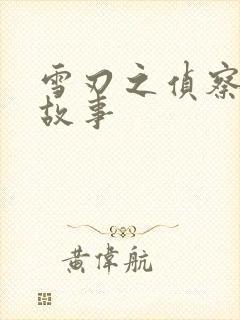 雪刃之偵察
故事
黄偉航